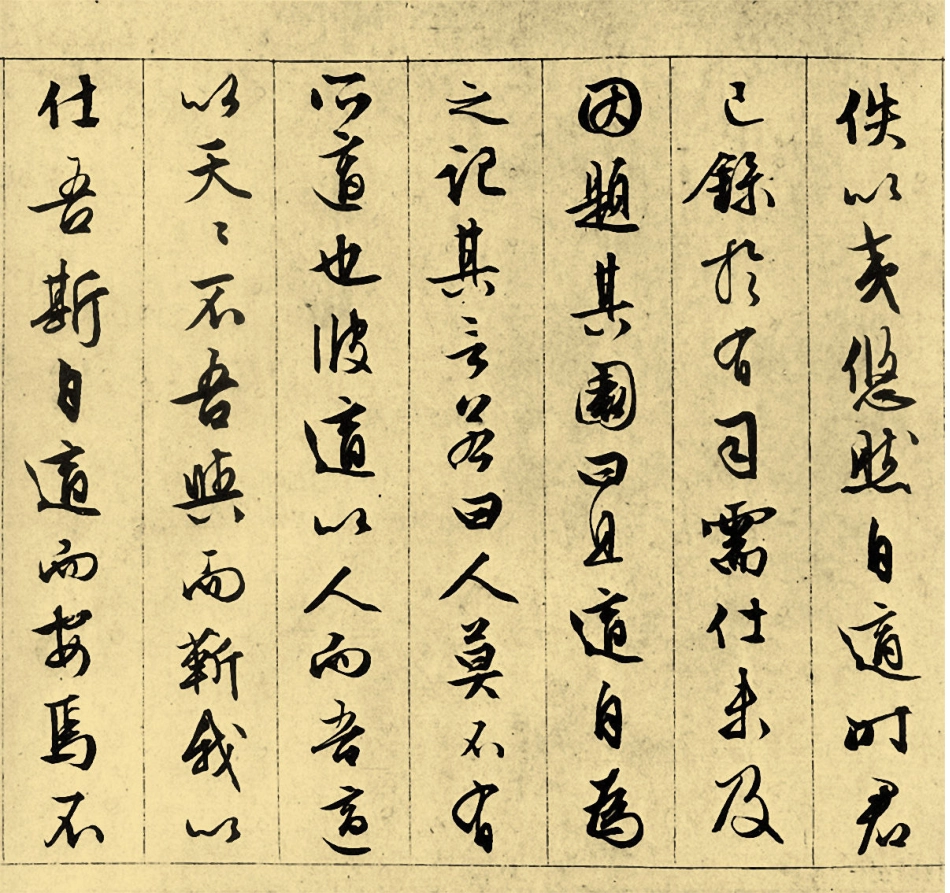 佚以夷悠然自適时君
已錄於有司需仕未及
因題其園曰且適自為
之記其言若曰人莫不有
所適也彼適以人而吾適
以天〻不吾與而靳我以
仕吾斯自適而安焉不